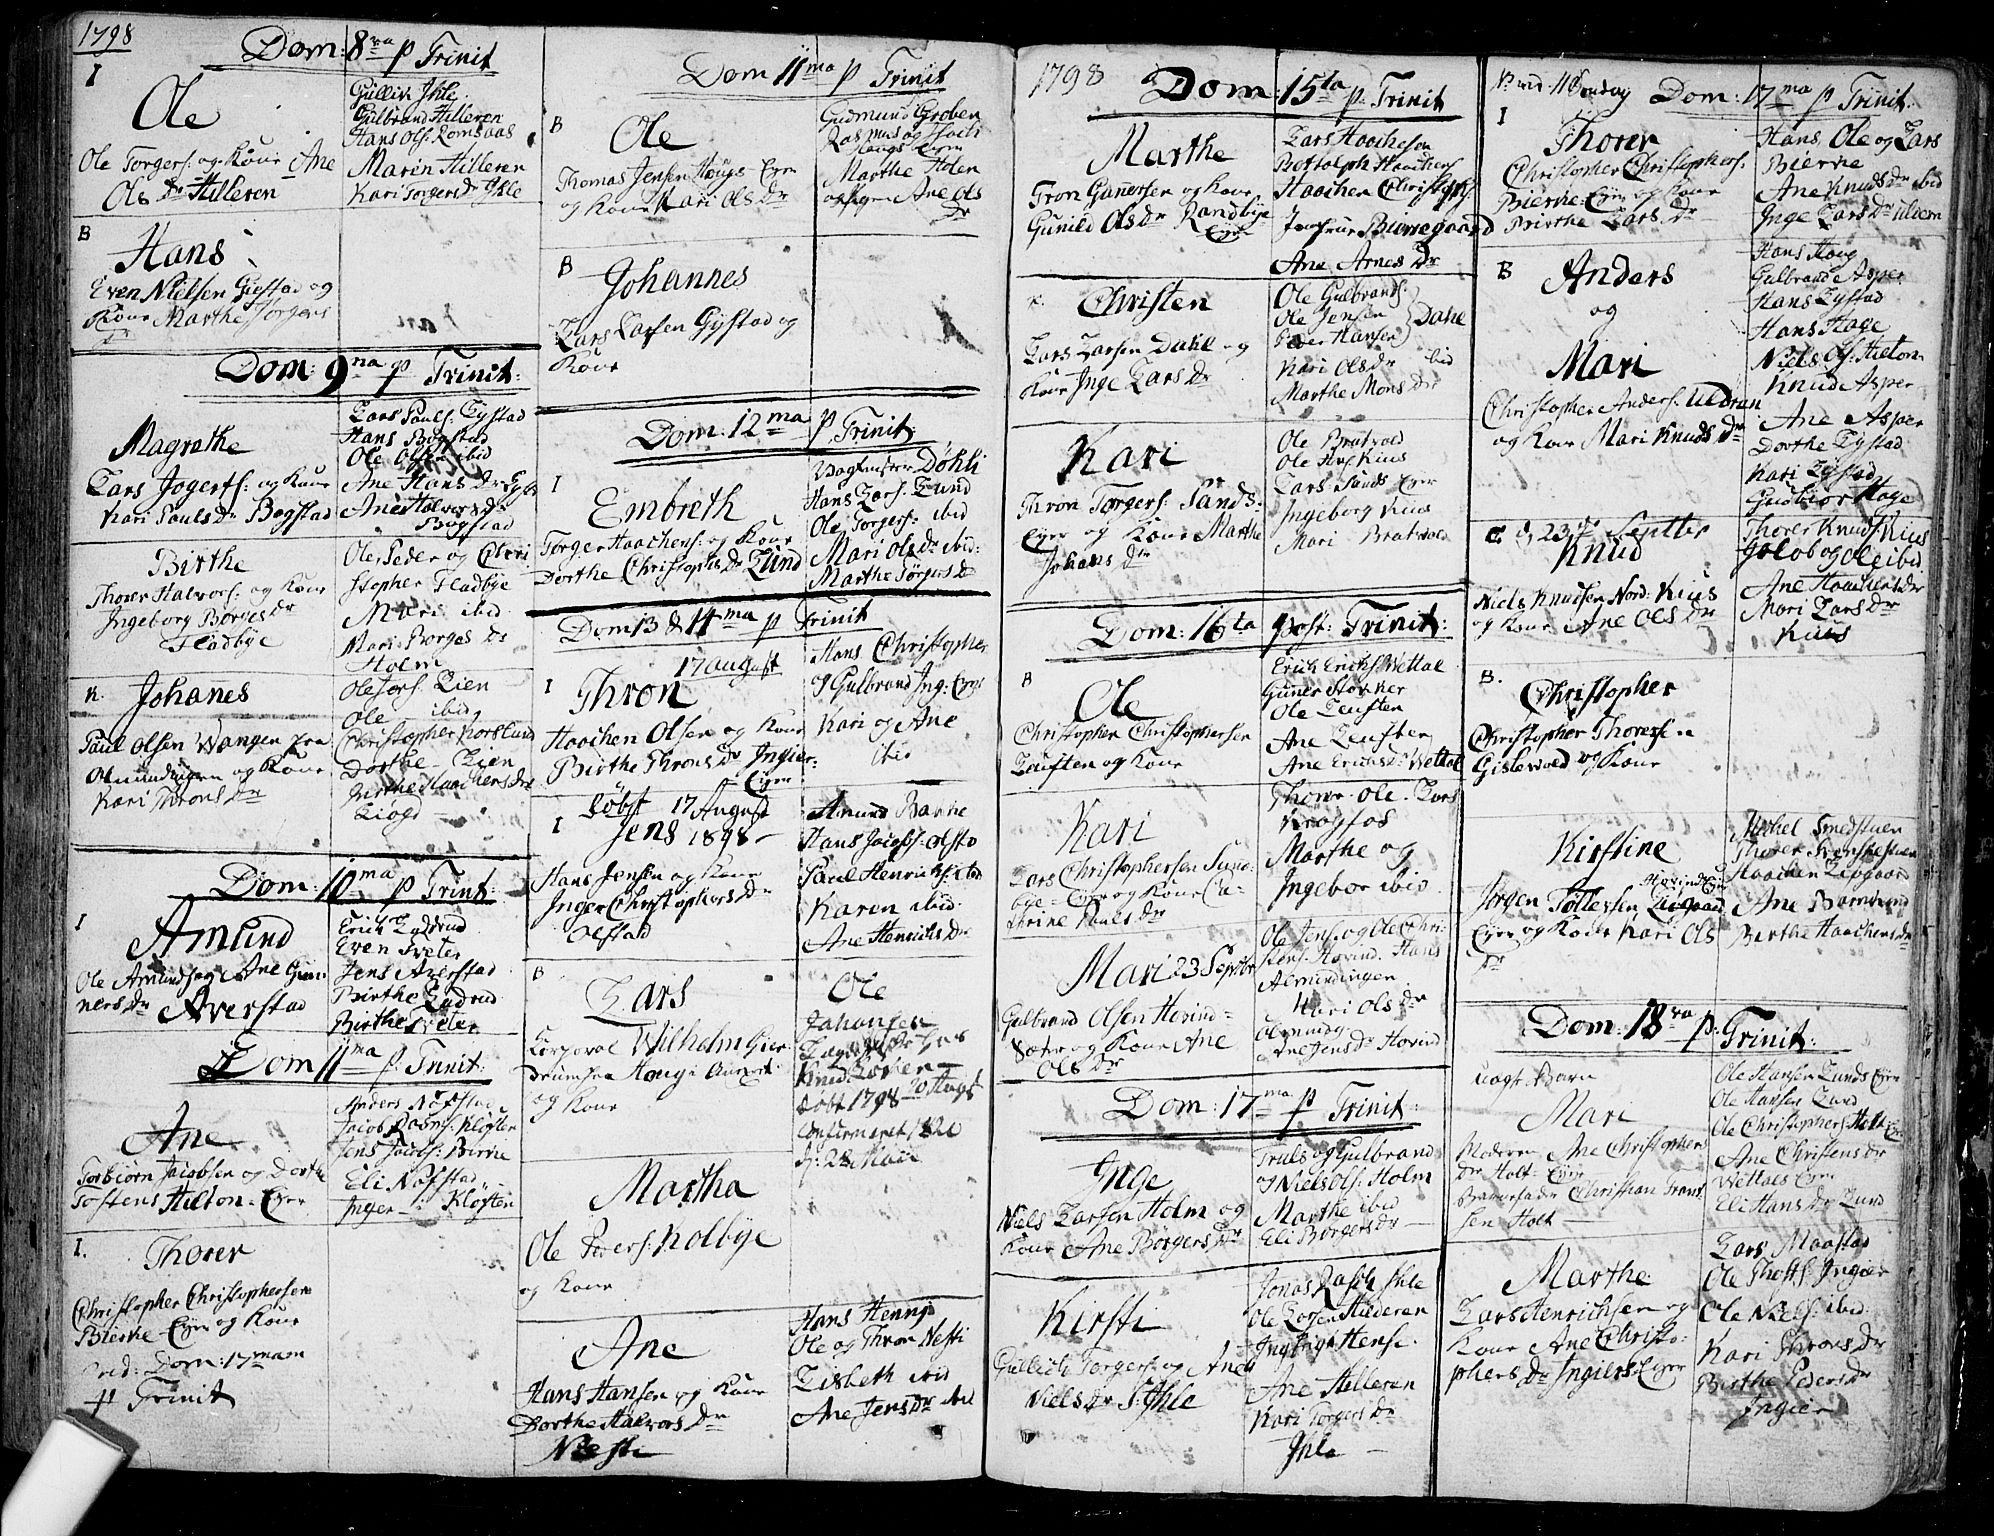 1798
Dom: 8va p Trinit
I
Ole
Ole Torgers: og Kone Ane
Ols Dr Hilleren
Gullik Ihle
Gulbrand Hilleren
Hans Ols: Romsaas
Maren Hilleren
Kari Torgers Dr Ihle
B
Hans
Even Nielsen Giestad og
Kone Marthe Jorgens
Dr
Dom: 9na p Trinit:
Magrethe
Lars Jogerts: og Kone
Kari Pauls Dr Bogstad
Lars Pauls: Lystad
Hans Bogstad
Ole Olsen ibid
Ane Hans Dr
Ane Halvors Dr
Bogstad
Birthe
Thorer Halvors: og Kone
Ingeborg Borges Dr
Fladbye
Ole, Peder og Chri
stopher Fladbye
Mari ibid
Mari Borges Dr
Holm
K.
Johanes
Paul Olsen Wangen fra
Almindingen og Kone
Kari Throns Dr
Ole Tors: Lien
Ole - ibid
Christopher Korslund
Dorthe - Lien
Birthe Haachens Dr
Dom: 10ma p Trinit:
I
Amund
Ole Amunds: og Ane Gun
ners Dr Averstad
Erich
Even Tveter
Jens Averstad
Birthe
Birthe Tveter
Dom 11ma p: Trinit:
Ane
Torbiörn Jacobsen og Dorthe
Tostens Hilton - Eyer
Anders Nöfstad
Jacob Rasm: Kloften
Jens Jacobs: Birke
Eli Nöfstad
Inger - Kloften
I.
Thorer
Christopher Christophersen
Bierke - Eyer og Kone
Dom: 17mam
p Trinit
Dom 11ma p Trinit
B
Ole
Thomas Jensen Hougs Eyer
og Kone Kari Ols Dr
Gudmund Groben
Rasmus og Hans
Hougs Eyer
Marthe Holen
og Ane Ols
Dr
B
Johannes
Lars Larsen Gystad og
Kone
Dom: 12ma p Trinit:
I
Embreth
Torger Haachens: og Kone
Dorthe Christophers Dr Lund
Döhli
Hans Lars: Lund
Ole Torgers: ibid
Mari Ols Dr ibid:
Marthe Törgers Dr
Dom 13 & 14ma p Trinit
17 August
I
Thron
Haachen Olsen og Kone
Birthe Throns Dr Ingier:
Eyer
Hans Christopher
og Gulbrand Ing: Eyer
Kari og Ane
ibid
Döbt 17 August
I
Jens 1898
Hans Jensen og Kone
Inger Christophers Dr
Olstad
Amund Barke
Hans Jacobs: Olstad
Paul Henrichs: ibid
Karen ibid
Ane Henrichs Dr
B
Lars
Corporal Wilhelm Gier
drum fra Houg i Aurs
og Kone
Ole
Johansen
Knud
Döbt 1798
Confirmeret 1820
d: 28 Maii
Martha
Ole Peders: Kolbye
og Kone
Ane
Hans Hansen og Kone
Dorthe Halvors Dr
Nieste
Hans Hennj
Ole og Thron Nesti
Lisbeth ibid
Ane Jens Dr ibid
1798
Dom: 15ta p: Trinit
Marthe
Tron Gunersen og Kone
Gunild Ols Dr Randbye
Eyer
Lars Haachesen
Bottolph Haachens
Haachen Christoph
Jomfrue Biorregaard
Ane Arnes Dr
Christen
Lars Larsen Dahl og
Kone Inge Lars Dr
Ole Gulbrands
Ole Jensen
Peder Hansen
Dahl
Kari Ols Dr ibid
Marthe Mons Dr
Kari
Thron Torgers: Sands:
Eyer og Kone Marthe
Johans Dr
Ole Bratvold
Ole Kius
Lars Sands Eyer
Ingeborg Kius
Mari Bratvold
Dom: 16ta post: Trinit:
B
Ole
Christopher Christophersen
Leufsten og Kone
Erich Erichs: Wettal
Guner Storker
Ole Leufsten
Ane Leufsten
Ane Erichs Dr Wettal
Kari
Lars Christophersen Sund
bye - Eyer og Kone Ca-
thrine Pauls Dr
Thorer - Ole - Lars
Krogfos
Marthe og
Ingebor ibid
Mari 23 Septbr
Gulbrand Olsen Hovind
Sæter og Kone Ane
Ols Dr
Ole Jens: og Ole Chri-
stens: Hovind. Hans
Almindingen
Kari Ols Dr
Ane Jens Dr Hovind
Dom: 17ma p Trinit:
Inge
Niels Larsen Holm og
Kone Ane Börgers Dr
Truls og Gulbrand
og Niels Ols: Holm
Marthe ibid
Eli Börgers Dr
Kirsti
Gullich Torgers: og Ane
Niels Dr Ihle
Jonas Ihle
Ole
Ane Hilleren
Kari Torgers Dr
Ihle
Dom: 17ma p Trinit:
I
Thorer
Christopher Christophers:
Bierke - Eyer og Kone
Birthe Lars Dr
Hans, Ole og Lars
Bierke
Ane Knuds Dr ibid
Inge Lars Dr Ulvern
B
Anders
og
Mari
Christopher Anders: Uldran
og Kone Mari Knuds Dr
Hans Haug
Gulbrand Asper
Hans Lystad
Hans Hage
Niels Ols: Hilton
Knud Asper
Ane Asper
Dorthe Lystad
Kari Lystad
Gudbior Hage
d: 23de Septbr
Knud
Niels Knudsen Nord: Kius
og Kone Ane Ols Dr
Thorer Knuds: Kius
Jacob og Ole ibid
Ane Haachens Dr
Mari Lars Dr
Kius
B.
Christopher
Christopher Thorersen
Gislevold og Kone
Kirstine
Hovinds
Eyer
Jörgen Tollefsen Liögaard
Eyer og Kone Kari Ols
Dr
Michel Smedstuen
Thorer Svenskestuen
Haachen Liögaard
Ane
Berthe Haachens Dr
Dom: 18va p: Trinit:
uægt: Barn
Mari
Moderen Ane Christophers
Dr Holt - Eyer
Barnefader Christian Frant
sen Holt
Ole Hansen Lunds Eyer
Ole Hansen Lund
Ole Christophers: Holt Eyer
Ane Christens Dr
Wettals Eyer
Eli Hans Dr Lund
Marthe
Lars Henrichsen og
Kone Ane Christo:
phers Dr Ingiers Eyer
Lars Maastad
Ole Thosts: Ingier
Ole Niels: ibid
Kari Throns Dr
Birthe Peders Dr
Ingier